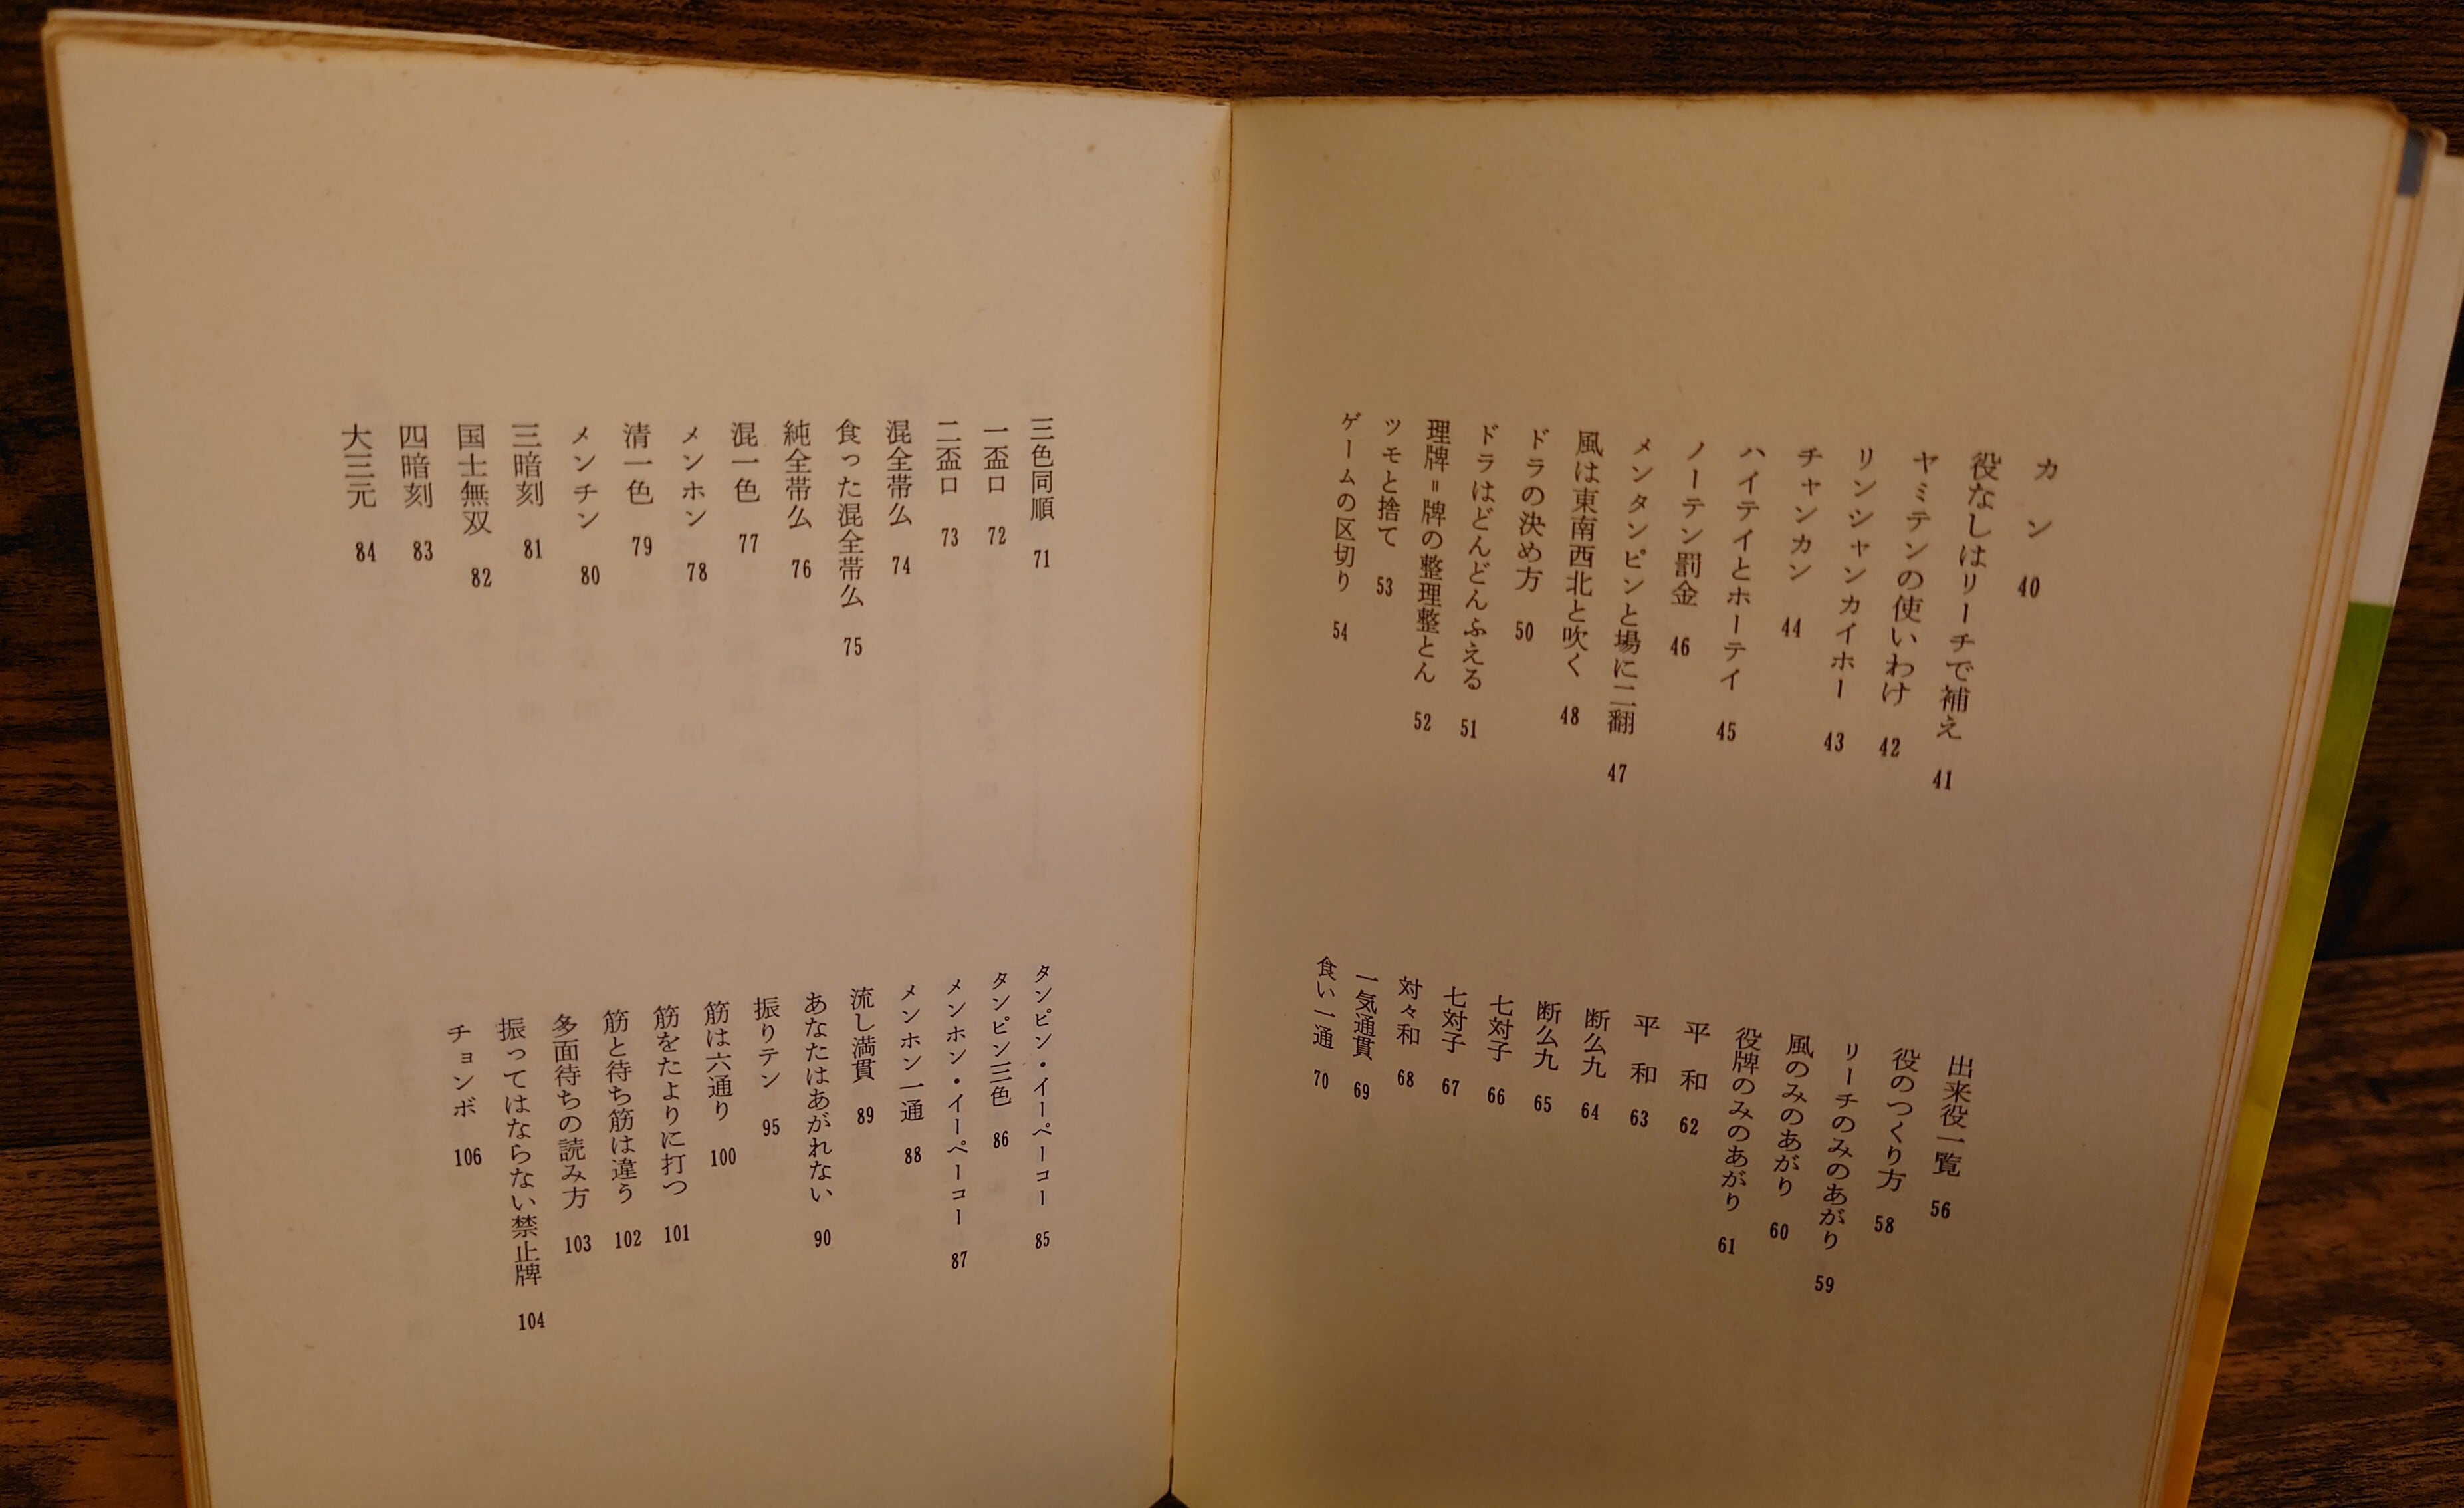 カン 40
役なしはリーチで補え 41
ヤミテンの使いわけ 42
リンシャンカイホー 43
チャンカン 44
ハイテイとホーテイ 45
ノーテン罰金 46
メンタンピンと場に二翻 47
風は東南西北と吹く 48
ドラの決め方 50
ドラはどんどんふえる 51
理牌=牌の整理整とん 52
ツモと捨て 53
ゲームの区切り 54
出来役一覧 56
役のつくり方 58
リーチのみのあがり 59
風のみのあがり 60
役牌のみのあがり 61
平和 62
平和 63
断么九 64
断么九 65
七対子 66
七対子 67
対々和 68
一気通貫 69
食い一通 70
三色同順 71
一盃口 72
二盃口 73
混全帯么 74
食った混全帯么 75
純全帯么 76
混一色 77
メンホン 78
清一色 79
メンチン 80
三暗刻 81
国士無双 82
四暗刻 83
大三元 84
タンピン・イーペーコー 85
タンピン三色 86
メンホン・イーペーコー 87
メンホン一通 88
流し満貫 89
あなたはあがれない 90
振りテン 95
筋は六通り 100
筋をたよりに打つ 101
筋と待ち筋は違う 102
多面待ちの読み方 103
振ってはならない禁止牌 104
チョンボ 106